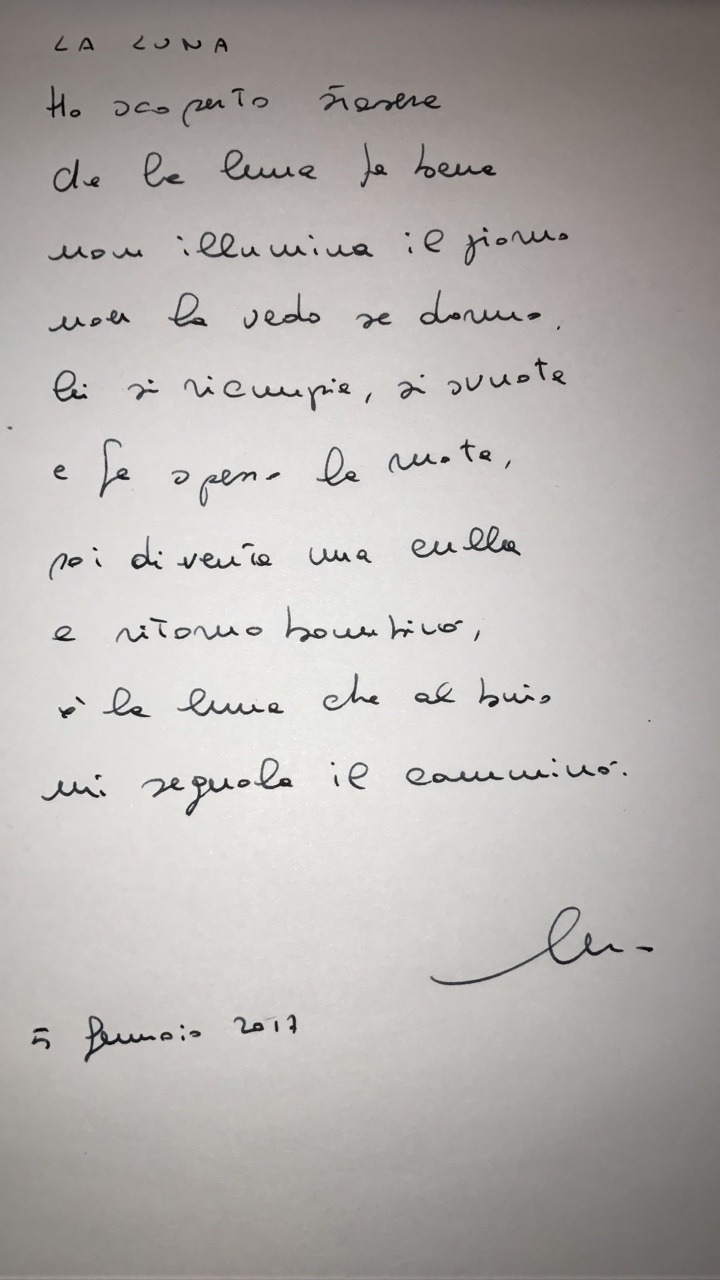 LA LUNA
Ho scoperto stasera
che la luna fa bene
non illumina il giorno
non la vedo se dormo,
lei si riempie, si svuota
e fa spesso la ruota,
poi diventa una culla
e ritorno bambino,
è la luna che al buio
mi segnala il cammino.
5 gennaio 2017